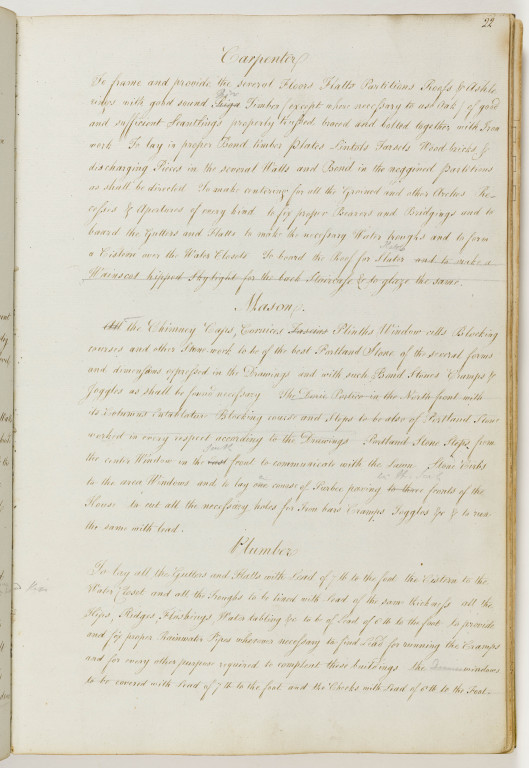 22
Carpenter
To frame and provide the several Floors Flatts Partitions Roofs & Ashle
rines with good sound Riga Timber (except where necessary to use Oak) of good
and sufficient Scantlings properly trussed braced and bolted together with Iron
work To lay in proper Bond timber Plates Lintels Torsels Wood bricks &
discharging Pieces in the several Walls and Bond in the noggined Partitions
as shall be directed To make centering for all the Groined and other Arches Re-
cesses & Apertures of every kind to fix proper Bearers and Bridgings and to
board the Gutters and Flatts to make the necessary Water troughs and to form
a Cistern over the Water Closets To board the Roof for Slater and to make a
Wainscot hipped Skylight for the back Staircase & to glaze the same.
Mason.
All the Chimney Caps, Cornices Fascias Plinths Window cills Blocking
courses and other Stone work to be of the best Portland Stone of the several forms
and dimensions expressed in the Drawings and with such Bond Stones Cramps &
Joggles as shall be found necessary The Doric Portico in the North front with
its Columns Entablature Blocking course and Steps to be also of Portland Stone
worked in every respect according to the Drawings Portland Stone Steps from
south
the center Window in the front to communicate with the Lawn Stone Kerbs
to the area Windows and to lay one course of Purbec paving to three fronts of the
House to cut all the necessary holes for Iron bars Cramps Joggles &c & to run
the same with lead.
Plumber
To lay all the Gutters and Flatts with Lead of 7 lb to the foot the Cistern to the
Water Closet and all the Troughs to be lined with Lead of the same thickness all the
Hips, Ridges, Flashings Water tabling &c to be of Lead of 6 lb to the foot to provide
and fix proper Rainwater Pipes wherever necessary to find Lead for running the Cramps
and for every other purpose required to compleat these buildings the windows
to be covered with Lead of 7 lb to the foot and the Cheeks with Lead of lb to the Foot-